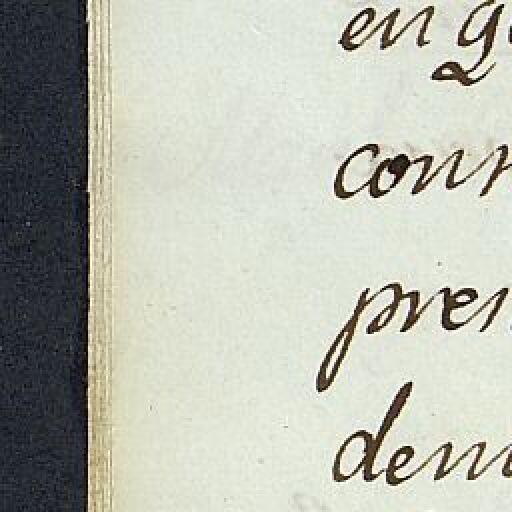 en g
conn
pren
dem